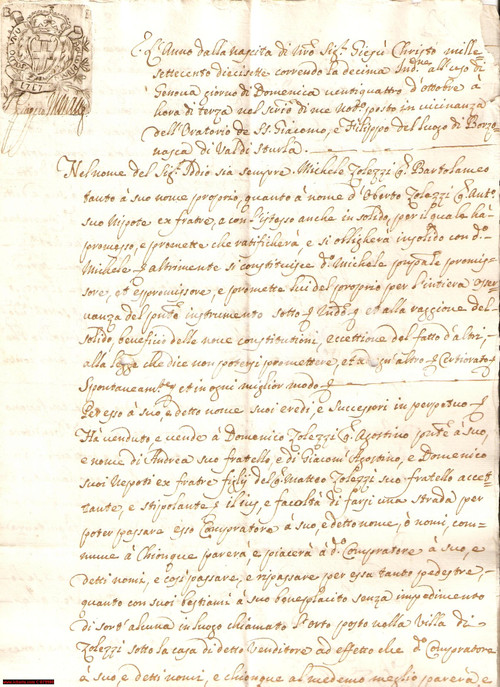 1717
L'Anno dalla nascita di nro Sig.r Giesù Christo mille
settecento diecisette correndo la decima Ind.ne all'uso di
Genova giorno di Domenica ventiquattro d'ottobre à
hora di terza nel scrio di me Not.o posto in vicinanza
dell'Oratorio de SS. Giacomo, e Filippo del luogo di Borzo
nasca di Val di Sturla
Nel nome del Sig.r Iddio sia sempre. Michele Zolezzi q. Bartolameo
tanto à suo nome proprio, quanto à nome d'Oberto Zolezzi q. Ant.o
suo Nipote ex fratre, a con l'istesso anche in solido, per il quale hà
promesso, e promette che ratificherà e si obligherà in solido con d.o
Michele altrimente si constituisce d.o Michele principale promis-
sore, et espromissore, e promette lui del proprio per l'intiera osser-
vanza del pnte instrumento sotto et alla raggione del
solido, beneficio delle nove constitutioni, eccettione del fatto d'altri,
alla legge che dice non potersi promettere, et a ogn'altro Certiorato
Spontaneam.te et in ogni miglior modo
Per esso à suo, e detto nome suoi eredi, e successori in perpetuo
Hà venduto, e vende à Domenico Zolezzi q. Agostino pnte à suo,
e nome di Andrea suo fratello, e di Giacom' Agostino, e Domenico
suoi Nepoti ex fratre figlij del q. Matteo Zolezzi suo fratello accet-
tante, e stipolante il ius, e facoltà di farsi una strada per
poter passare esso Compratore à suo, e detto nome, ò nomi, com-
mune à Chionque parerà, e piacerà à d.o Compratore à suo, e
detti nomi, e così passare, e ripassare per essa tanto pedestre,
quanto con suoi bestiami à suo beneplacito senza impedimento
di sort' alcuna in luogo chiamato l'orto posto nella Villa di
Zolezzi sotto la casa di detto Venditore ad effetto che d.o Compratore
à suo, e detti nomi, e chionque al medemo meglio parerà e